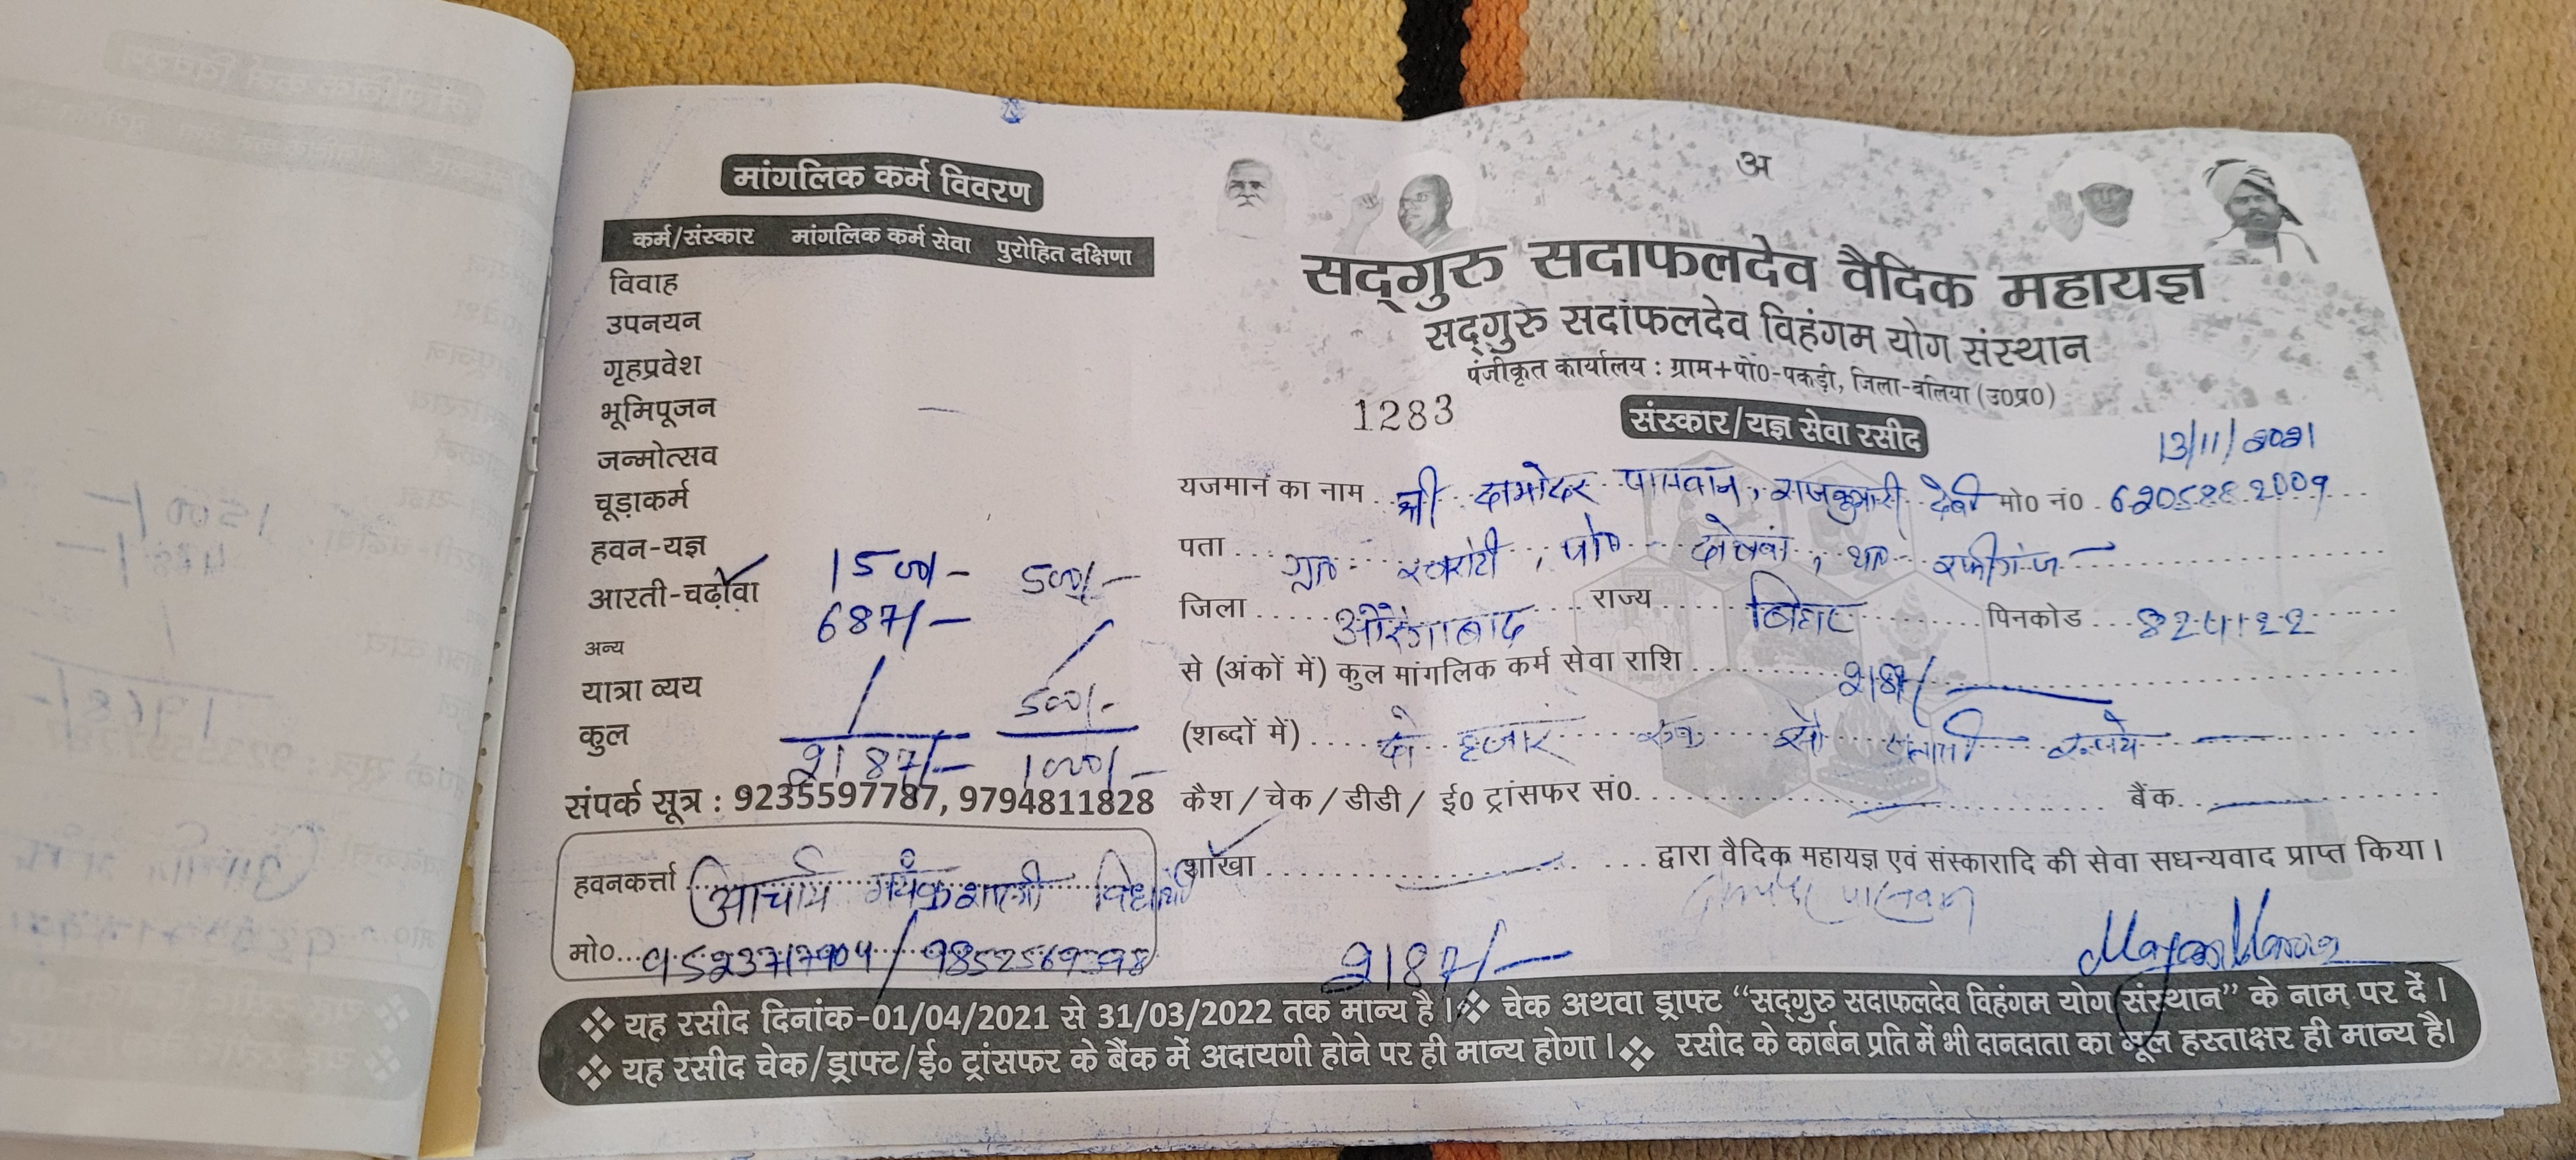 मांगलिक कर्म विवरण
कर्म/संस्कार मांगलिक कर्म सेवा पुरोहित दक्षिणा
विवाह
उपनयन
गृहप्रवेश
भूमिपूजन
जन्मोत्सव
चूड़ाकर्म
हवन-यज्ञ 1500/- 500/-
आरती-चढ़ावा 687/-
अन्य
यात्रा व्यय 500/-
कुल 2187/- 1000/-
संपर्क सूत्र : 9235597787, 9794811828
हवनकर्त्ता आचार्य मयंक शास्त्री
मो०... 9523717904 /
अ
सद्गुरु सदाफलदेव वैदिक महायज्ञ
सद्गुरु सदाफलदेव विहंगम योग संस्थान
पंजीकृत कार्यालय : ग्राम+पो0-पकड़ी, जिला-बलिया (उ0प्र0)
1283
संस्कार/यज्ञ सेवा रसीद
13/11/2021
यजमान का नाम श्री दामोदर पासवान, राजकुमारी देवी मो0 नं0
पता ग्राम पो० थाना रफीगंज
जिला औरंगाबाद राज्य बिहार पिनकोड 824122
से (अंकों में) कुल मांगलिक कर्म सेवा राशि 2187/
(शब्दों में) दो हजार एक सौ सतासी रूपये
कैश / चेक / डीडी / ई0 ट्रांसफर सं0. बैंक
शाखा द्वारा वैदिक महायज्ञ एवं संस्कारादि की सेवा सधन्यवाद प्राप्त किया।
2187/-
❖ यह रसीद दिनांक-01/04/2021 से 31/03/2022 तक मान्य है। ❖ चेक अथवा ड्राफ्ट “सद्गुरु सदाफलदेव विहंगम योग संस्थान” के नाम पर दें।
❖ यह रसीद चेक/ड्राफ्ट/ई० ट्रांसफर के बैंक में अदायगी होने पर ही मान्य होगा। ❖ रसीद के कार्बन प्रति में भी दानदाता का मूल हस्ताक्षर ही मान्य है।